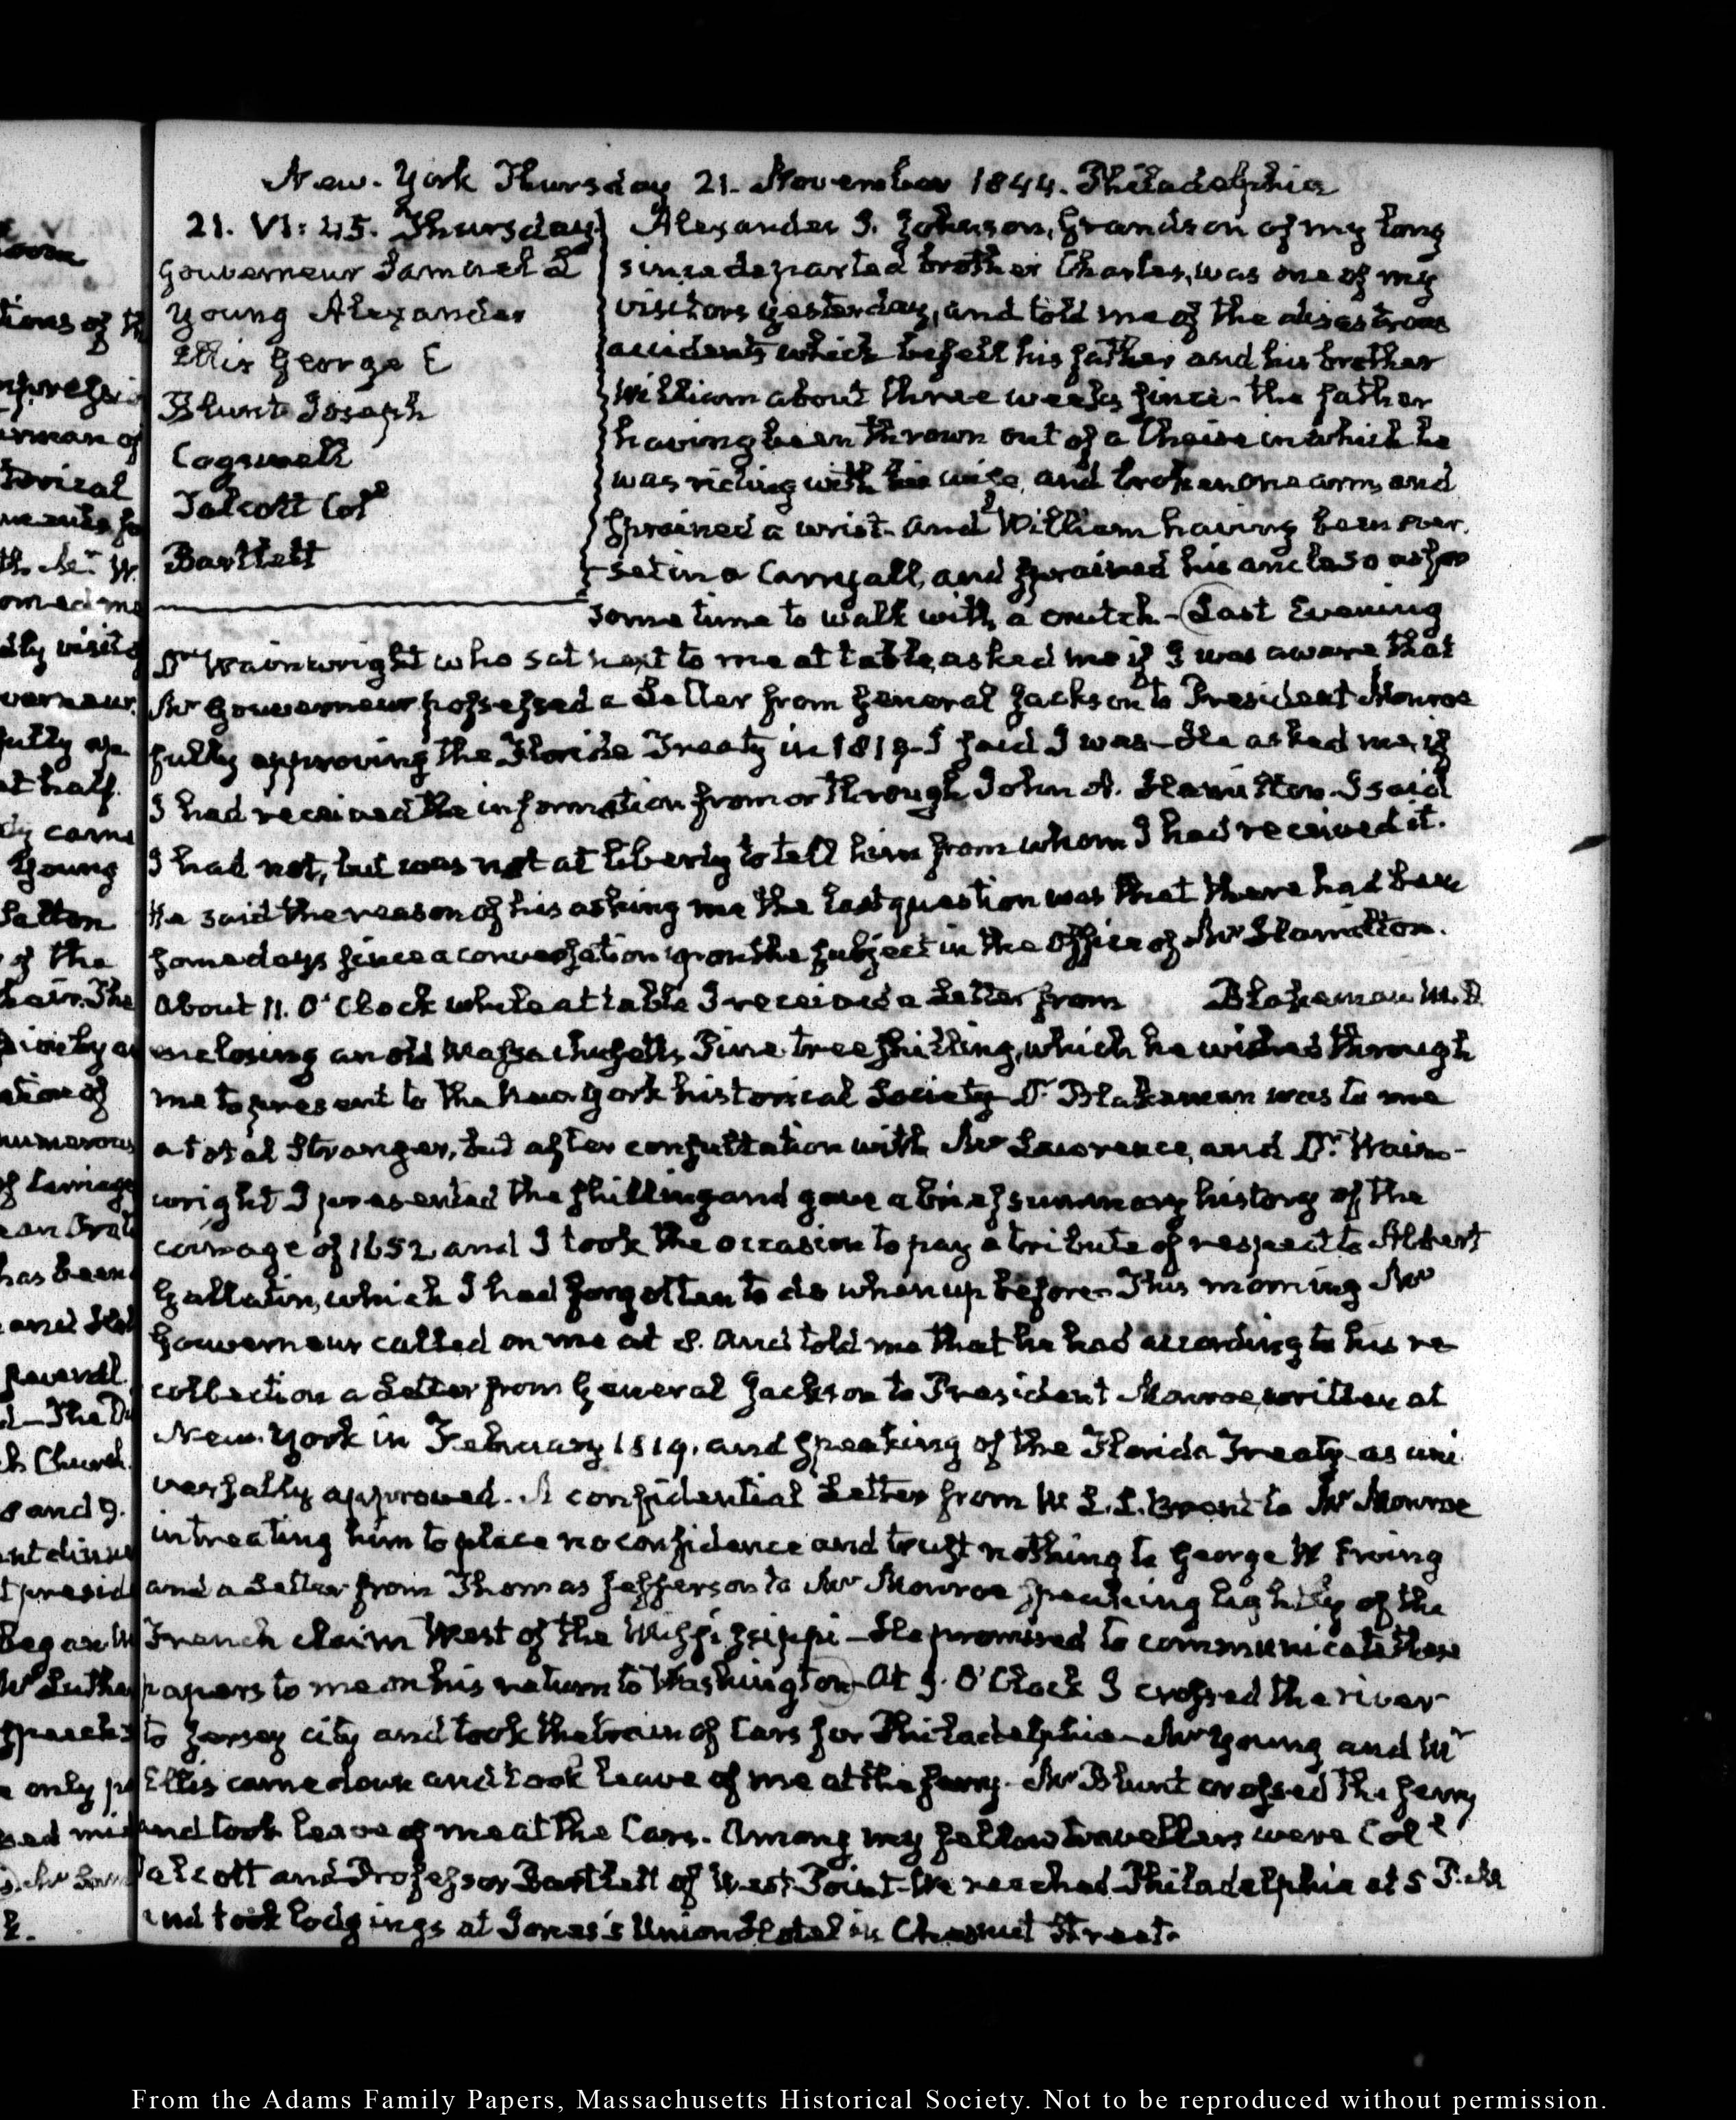 New-York Thursday 21. November 1844. Philadelphia
21. VI: 45. Thursday
Gouverneur Samuel L
Young Alexander
Ellis George E
Blunt Joseph
Cogswell
Talcott Col.l
Bartlett
Alexander S. Johnson, Grandson of my long
since departed brother Charles, was one of my
visitors yesterday, and told me of the disastrous
accidents which befell his father and his brother
William about three weeks since - the father
having been thrown out of a Chaise in which he
was riding with his wife, and broken one arm, and
sprained a wrist - and William having been over-
set in a Carryall, and sprained his ancle so as for
some time to walk with a crutch - Last Evening
Dr. Wainwright who sat next to me at table, asked me if I was aware that
Mr Gouverneur possessed a Letter from General Jackson to President Monroe
fully approving the Florida Treaty in 1819 - I said I was - He asked me, if
I had received the information from or through John A. Hamilton. I said
I had not, but was not at liberty to tell him from whom I had received it.
He said the reason of his asking me the last question was that there had been
some days since a conversation upon the subject in the Office of Mr Hamilton.
About 11. O'Clock while at table I received a Letter from Blakeman M.D.
enclosing an old Massachusetts Pine tree shilling, which he wished through
me to present to the New York historical Society - Dr. Blakeman was to me
a total Stranger, but after consultation with Mr Lawrence, and Dr. Wain-
wright I presented the shilling and gave a brief summary history of the
coinage of 1652 and I took the occasion to pay a tribute of respect to Albert
Gallatin, which I had forgotten to do when up before - This morning Mr
Gouverneur called on me at 8. and told me that he had according to his re
collection a Letter from General Jackson to President Monroe, written at
New-York in February 1819. and speaking of the Florida Treaty as uni
versally approved. A confidential Letter from W. L. Brent to Mr Monroe
intreating him to place no confidence and trust nothing to George W Erving
and a Letter from Thomas Jefferson to Mr Monroe speaking lightly of the
French claim West of the Missisippi - He promised to communicate these
papers to me on his return to Washington - At 9. O'Clock I crossed the river
to Jersey city and took the train of Cars for Philadelphia - Mr Young and Mr
Ellis came down and took leave of me at the ferry - Mr Blunt crossed the ferry
and took leave of me at the Cars. Among my fellow travellers were Col.l
Talcott and Professor Bartlett of West-Point - We reached Philadelphia at 5 P.M.
and took lodgings at Jones's Union Hotel in Chesnut Street.
From the Adams Family Papers, Massachusetts Historical Society. Not to be reproduced without permission.